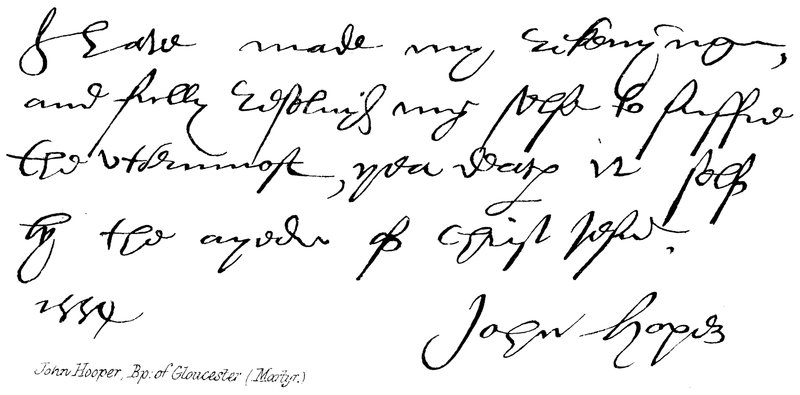 I have made my rikenynge,
and fully resolvid my selfe to suffre
the uttermost, yea death it self
by the ayede of Christ Jesu.
1554
John Hoper
John Hooper, Bp: of Gloucester (Martyr.)